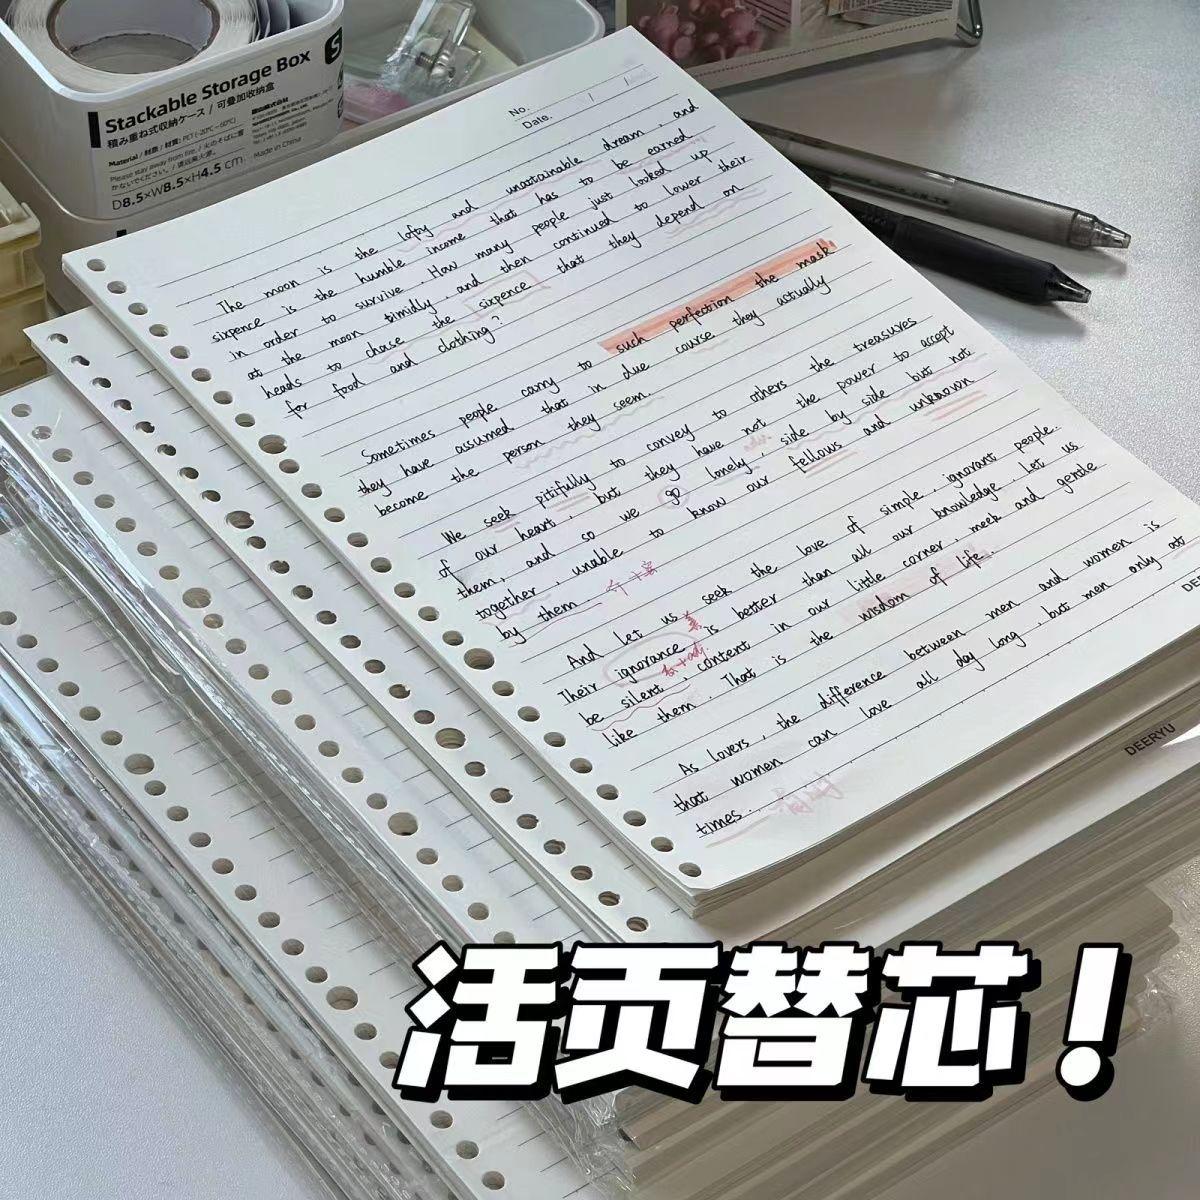 Stackable Storage Box
積み重ね式収納ケース / 可叠加收纳盒
Material / 材質 / 材质: PET (-20℃~60℃)
Please stay away from fire. / 火のそばに置
かないでください。/ 请远离火源。
D8.5×W8.5×H4.5 cm
Made in China
No.
Date.
The moon is the lofty and unattainable dream, and
sixpence is the humble income that has to be earned
in order to survive. How many people just looked up
at the moon timidly, and then continued to lower their
heads to chase the sixpence that they depend on
for food and clothing?
Sometimes people carry to such perfection the mask
they have assumed that in due course they actually
become the person they seem.
We seek pitifully to convey to others the treasures
of our heart, but they have not the power to accept
them, and so we go lonely, side by side but not
together, unable to know our fellows and unknown
by them
And let us seek the love of simple, ignorant people.
Their ignorance is better than all our knowledge. Let us
be silent, content in our little corner, meek and gentle
like them. That is the wisdom of life.
As lovers, the difference between men and women is
that women can love all day long, but men only at
times.
DEERYU
活页替芯!